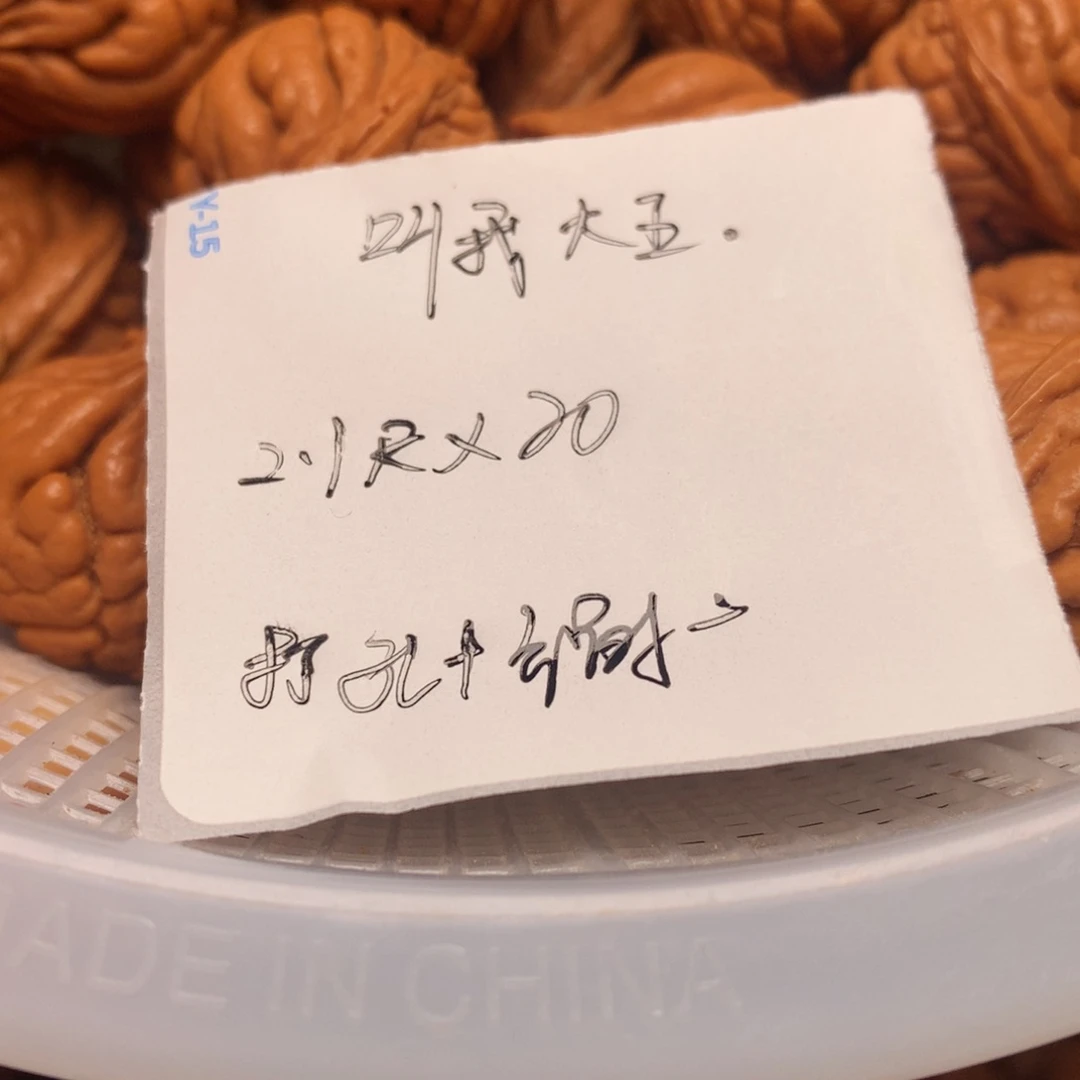 Y-15
叫我大王.
2.1尺×20
打孔+
MADE IN CHINA